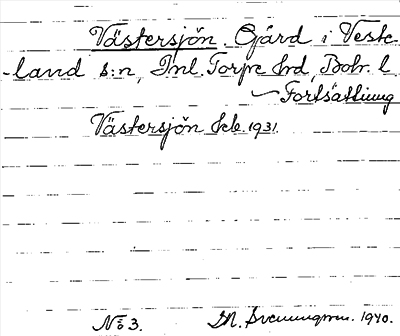 Västersjön Gård i Veste
-land s:n, Inl. Torpe hrd, Boh. l
Fortsättning
Västersjön kb. 1931.
No 3. M. Svenungsson. 1940.